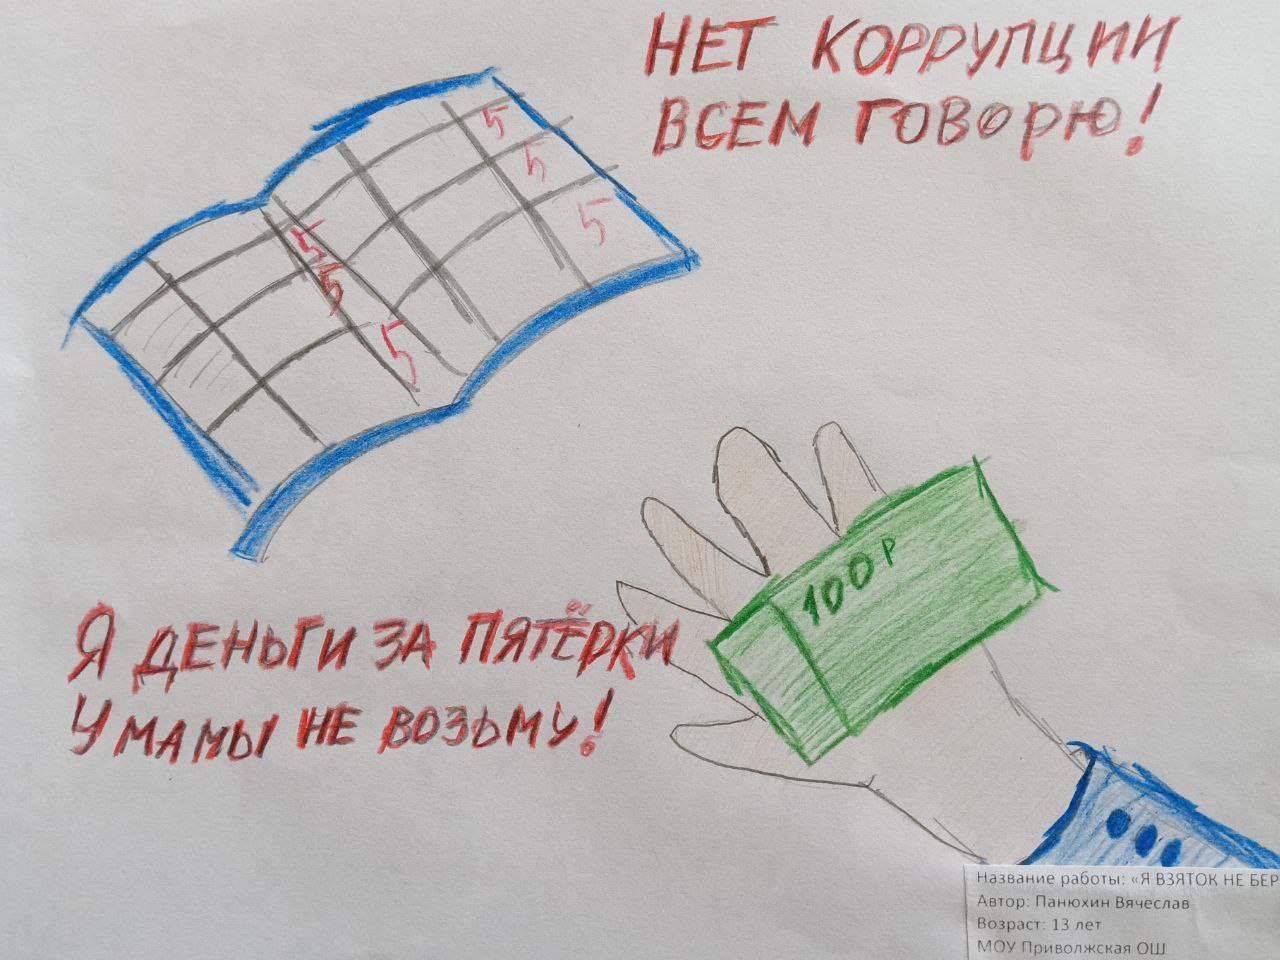 НЕТ КОРРУПЦИИ
ВСЕМ ГОВОРЮ!
5
5
5
5
5
5
100 Р
Я ДЕНЬГИ ЗА ПЯТЁРКИ
У МАМЫ НЕ ВОЗЬМУ!
Название работы: «Я ВЗЯТОК НЕ БЕР
Автор: Панюхин Вячеслав
Возраст: 13 лет
МОУ Приволжская ОШ